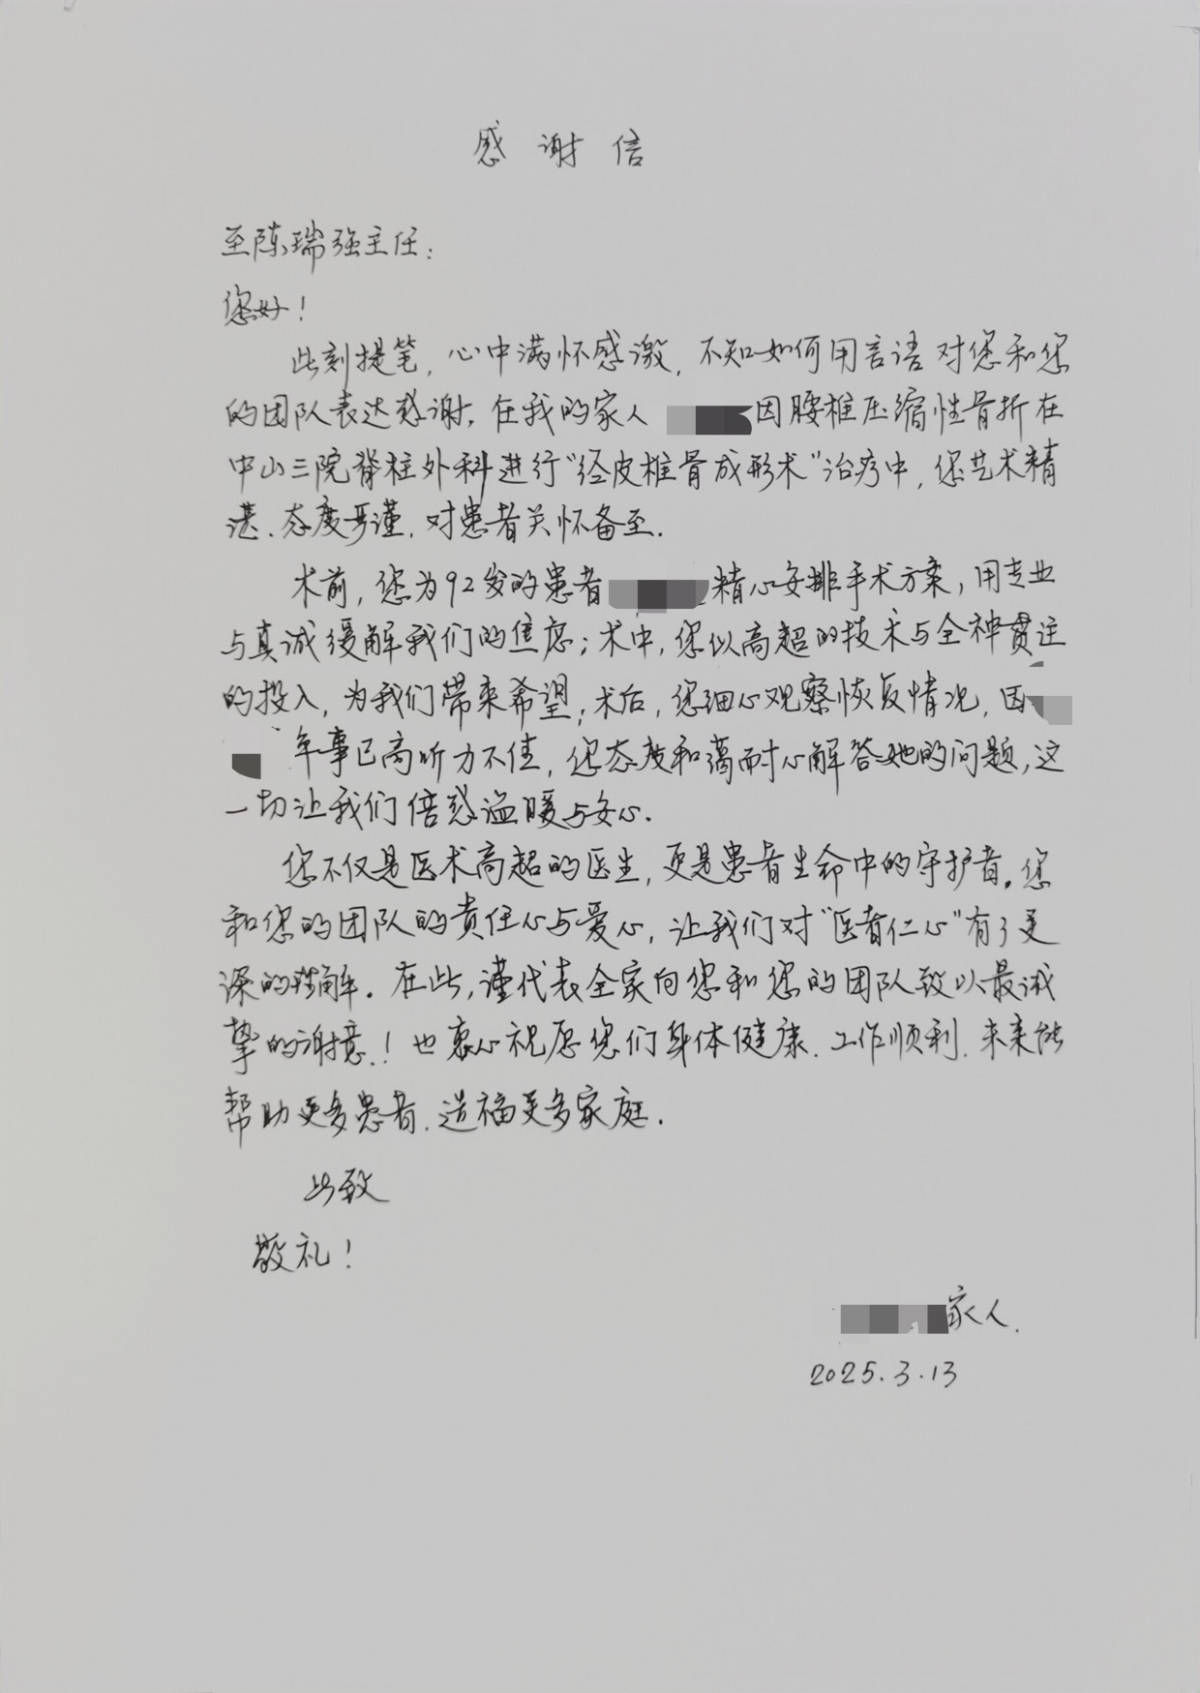 感谢信
至陈瑞强主任:
您好!
此刻提笔,心中满怀感激,不知如何用言语对您和您
的团队表达感谢,在我的家人因腰椎压缩性骨折在
中山三院脊柱外科进行"经皮椎骨成形术"治疗中,您艺术精
湛、态度严谨,对患者关怀备至.
术前,您为92岁的患者精心安排手术方案,用专业
与真诚缓解我们的焦虑;术中,您以高超的技术与全神贯注
的投入,为我们带来希望;术后,您细心观察恢复情况,因
年事已高听力不佳,您态度和蔼耐心解答她的问题,这
一切让我们倍感温暖与安心.
您不仅是医术高超的医生,更是患者生命中的守护者。您
和您的团队的责任心与爱心,让我们对"医者仁心"有了更
深的理解。在此,谨代表全家向您和您的团队致以最诚
挚的谢意!也衷心祝愿您们身体健康、工作顺利、未来能
帮助更多患者、造福更多家庭.
此致
敬礼!
家人.
2025.3.13